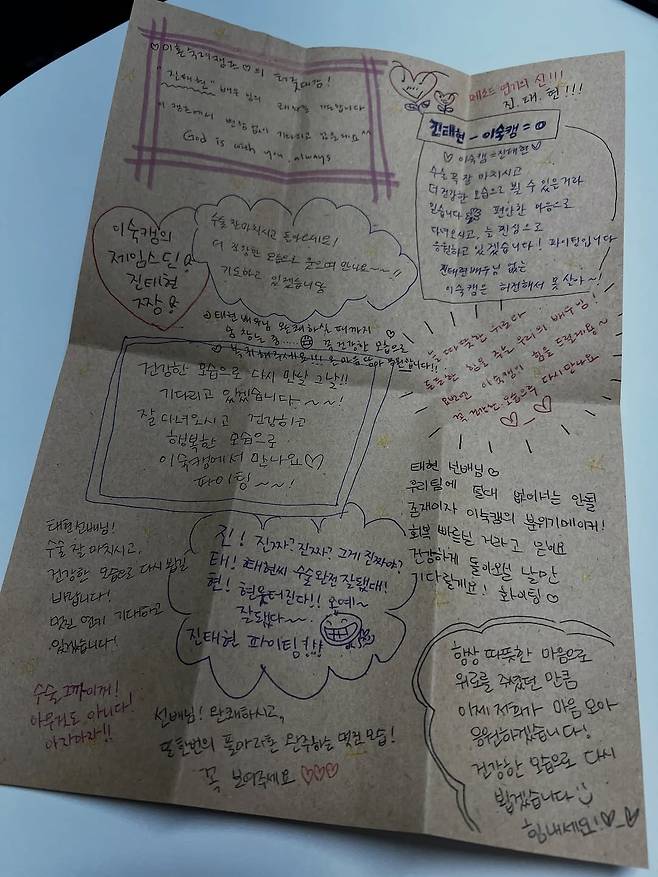 ♡이혼숙려캠프♡의 버팀대장!
"진태현" 배우 님의
변함없이
God is with you, always
메소드 연기의 신!!!
진.태.현!!!
진태현 - 이숙캠 = 0
♡ 이숙캠=진태현 ♡
수술 꼭 잘 마치시고
더 건강한 모습으로 뵐 수 있을거라
믿습니다 편안한 마음으로
다녀오시고, 늘 진심으로
응원하고 있겠습니다! 화이팅입니다
진태현배우님 없는
이숙캠은 허전해서 못 산다~!
이숙캠의
제임스딘!
진태현
짱!
수술 잘마치시고 돌아오세요!
더 건강한 모습으로 웃으며 만나요~~!!
기도하고 있겠습니당
태현 배우님 완쾌하실 때까지
꼭 건강한 모습으로
복귀해주세요!!! 온 마음 담아 응원합니다!!
건강한 모습으로 다시 만날 그날!!
기다리고 있겠습니다~~!
잘 다녀오시고 건강하고
행복한 모습으로
이숙캠에서 만나요♡♡
파이팅~~!
늘 따뜻한 위로와
든든한 힘을 주는 우리의 배우님!
이숙캠이 힘을 드릴게용~
꼭 모습으로 다시 만나요
태현 선배님♡
우리팀에 절대 없어서는 안될
존재이자 이숙캠의 분위기메이커!
회복 빠르실 거라고 믿어요
건강하게 돌아오실 날만
기다릴게요! 화이팅♡
태현선배님!
수술 잘 마치시고,
건강한 모습으로 다시 뵙길
바랍니다!
멋진 연기 기대하고
있겠습니다!
진! 진짜? 진짜? 그게 진짜야?
태! 태현씨 수술완전 잘됐대!
현! 현웃터진다!! 오예~
잘됐다~~!
진태현 파이팅!!!
수술 그까이꺼!
아무것도 아니다!
아자아자!!
선배님! 완쾌하시고,
또한번의 풀마라톤 완주하는 멋진모습!
꼭 보여주세요 ♡♡♡
항상 따뜻한 마음으로
위로를 주셨던 만큼
이제 저희가 마음 모아
응원하겠습니다!
건강한 모습으로 다시
뵙겠습니다 :)
힘내세요!